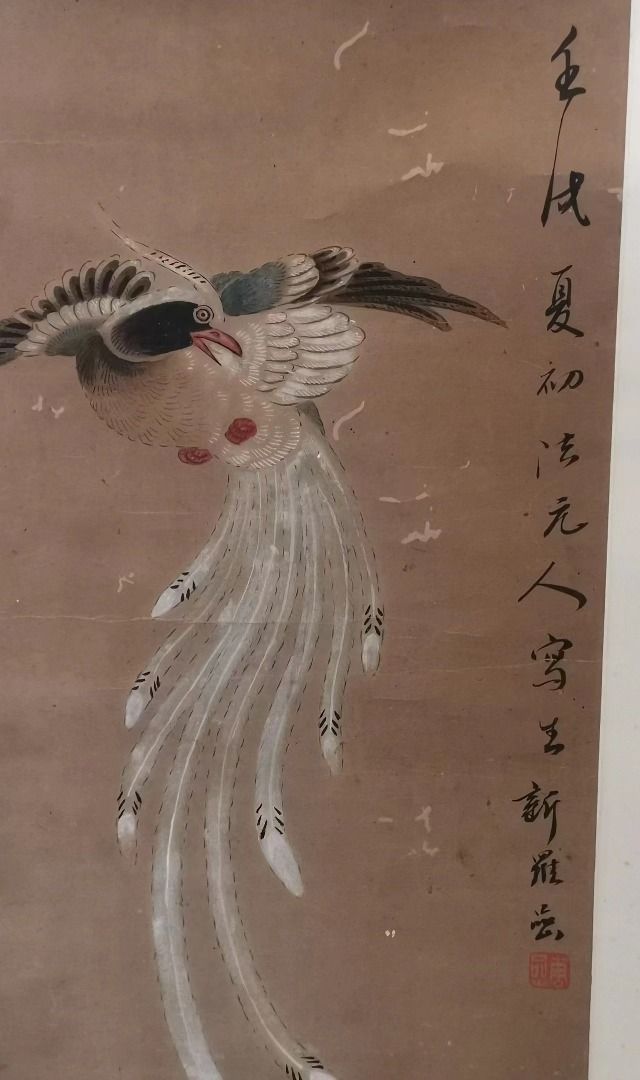 壬戌夏初法元人寫生新羅嵒